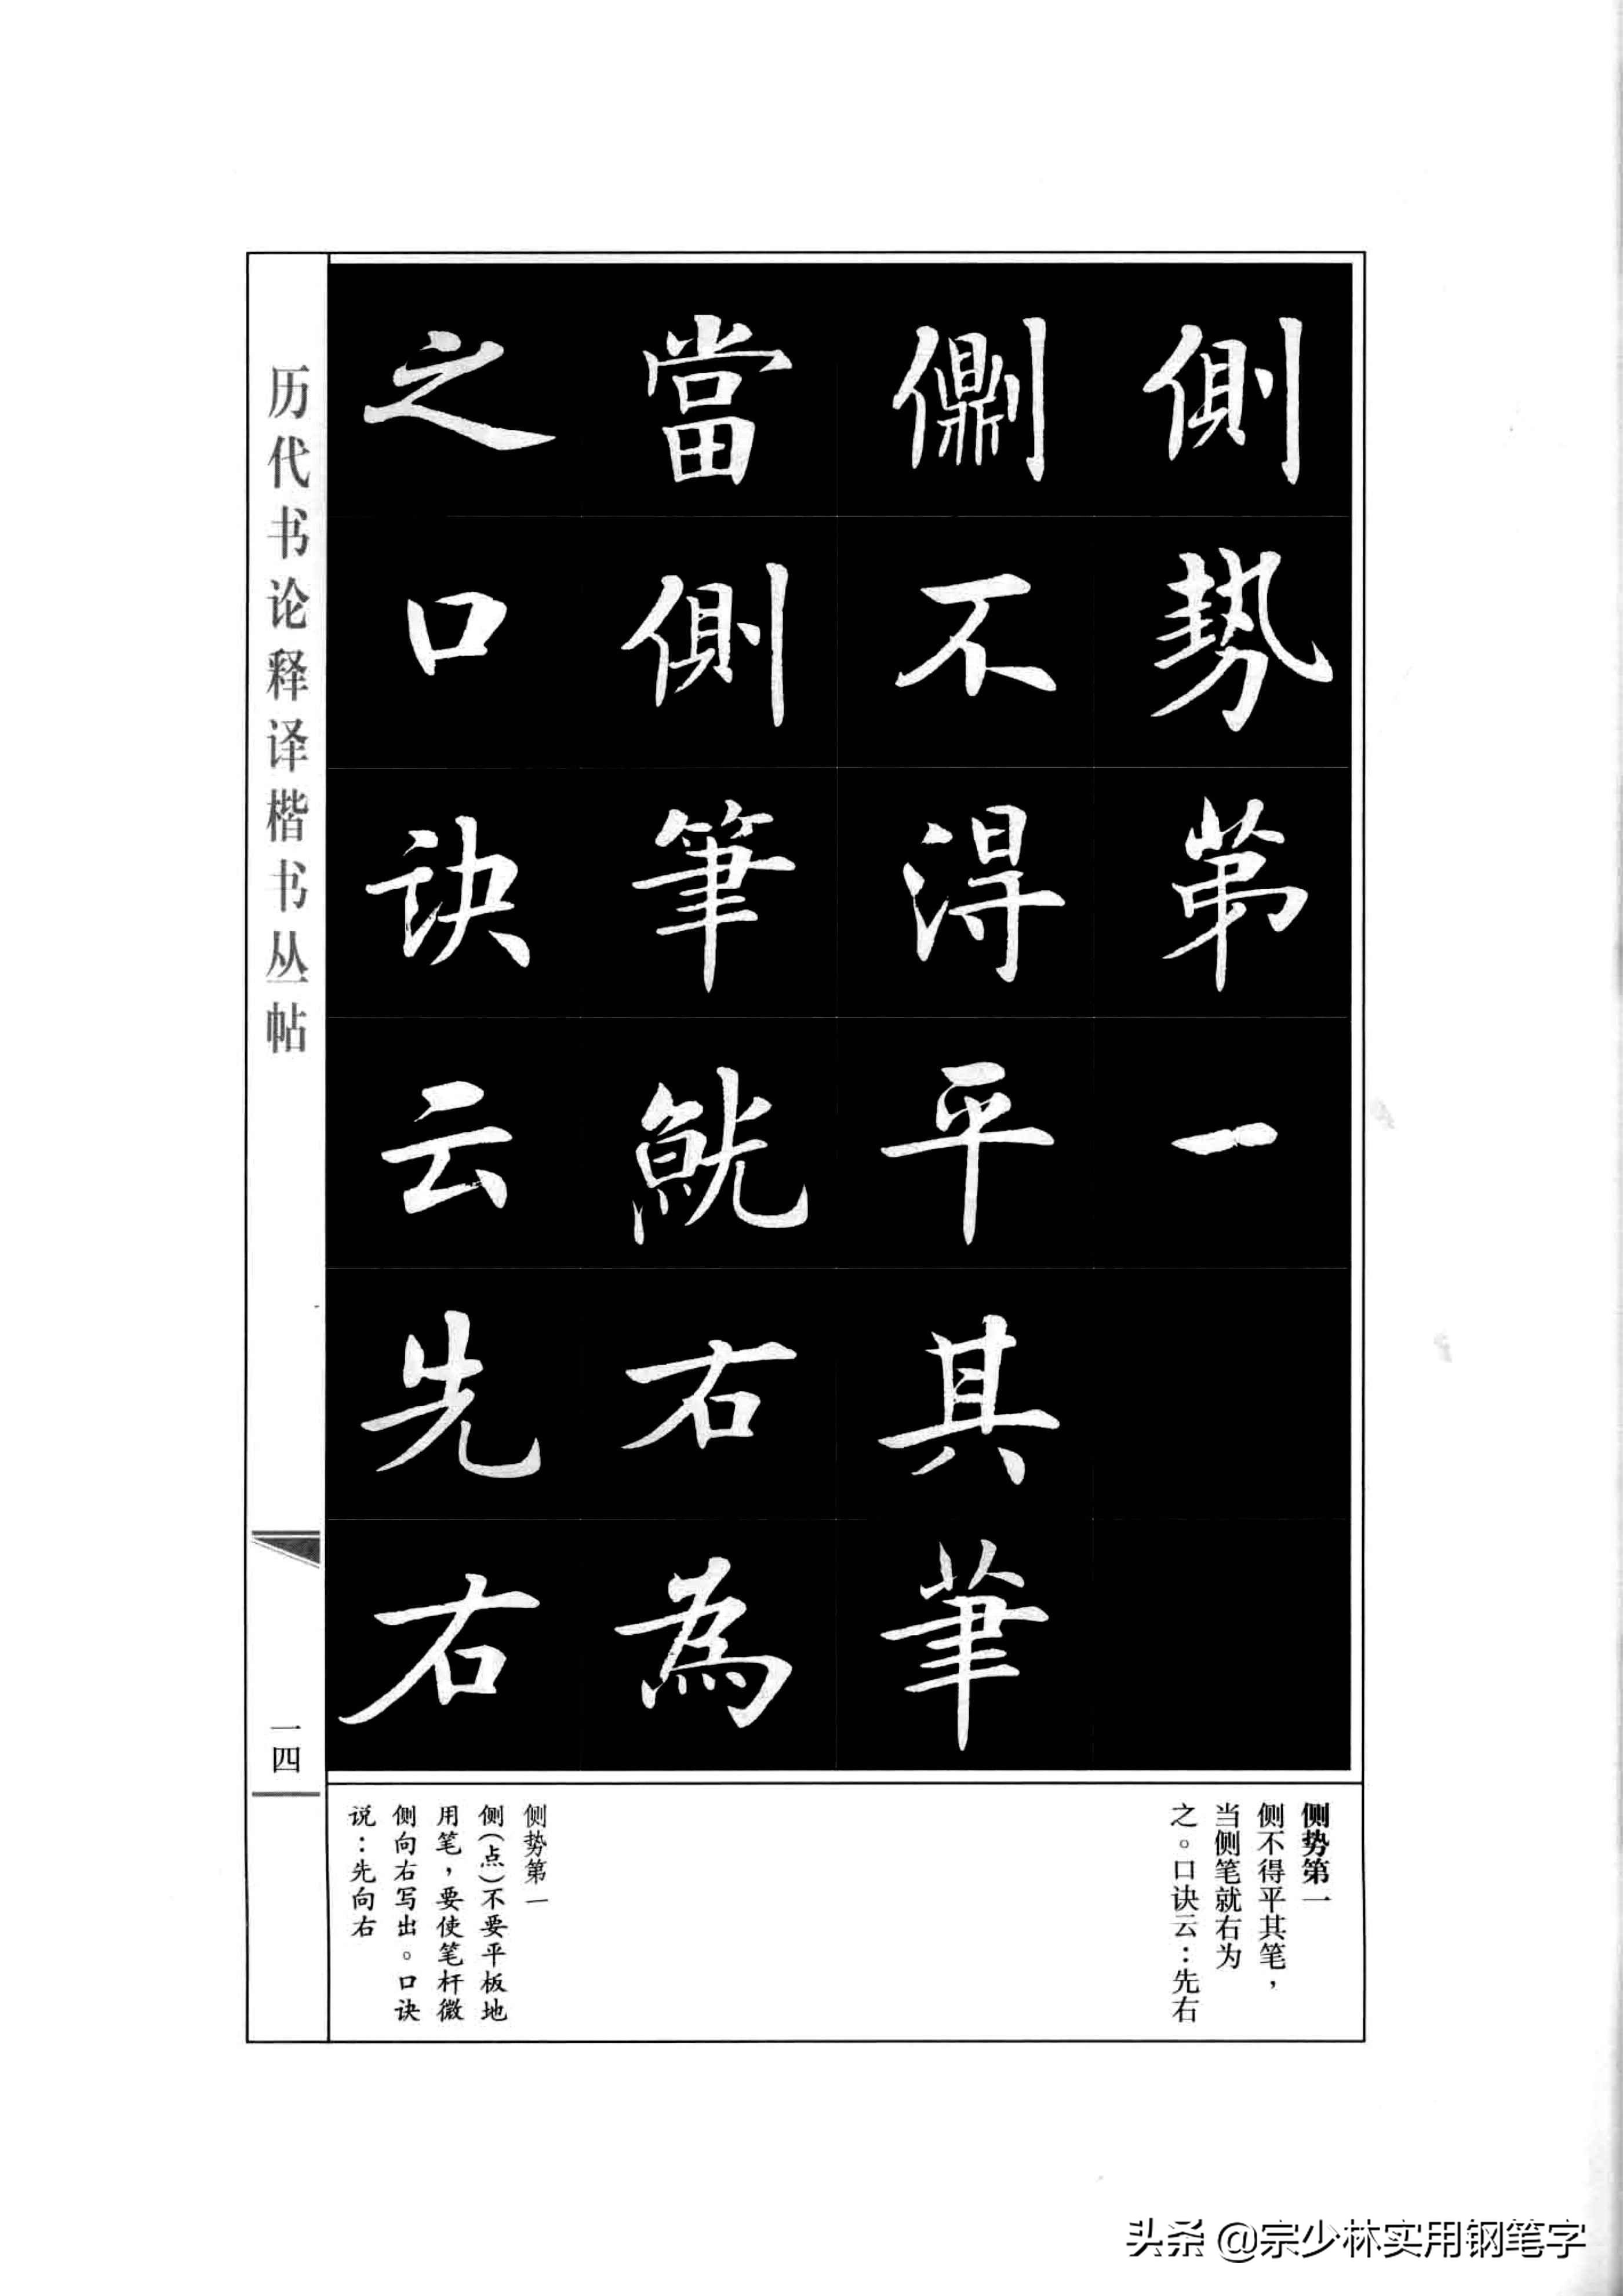 側勢第一
側不得平其筆
當側筆就右為
之口訣云先右
侧势第一
侧不得平其笔，
当侧笔就右为
之。口诀云：先右
侧势第一
侧（点）不要平板地
用笔，要使笔杆微
侧向右写出。口诀
说：先向右
历代书论释译楷书丛帖
一四
头条 @宗少林实用钢笔字